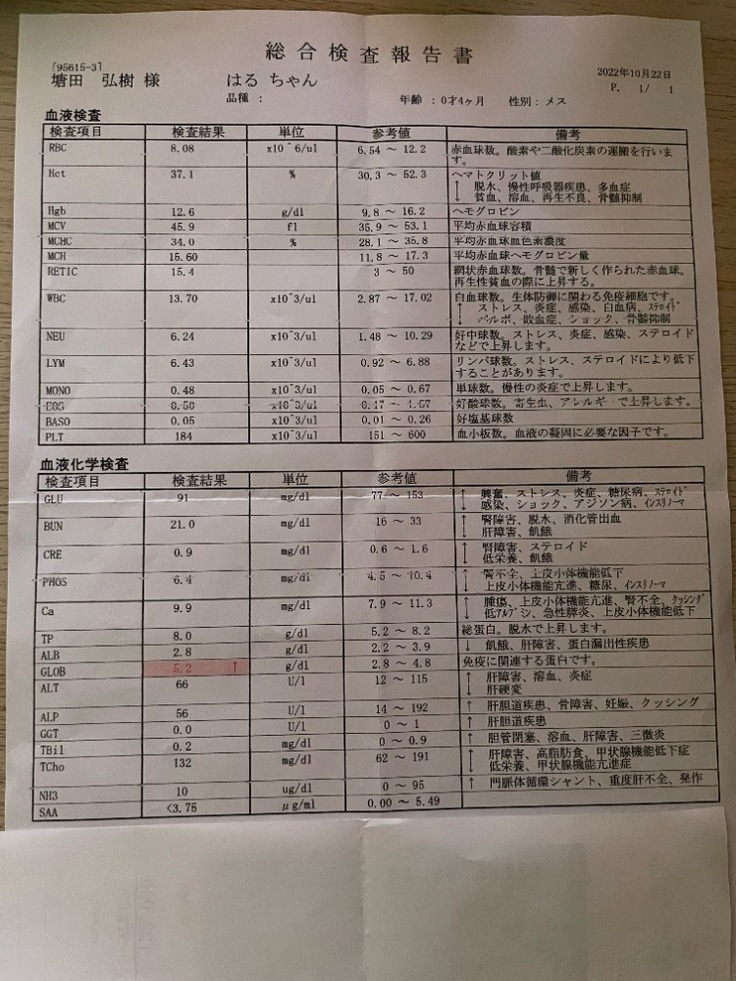 総合検査報告書
[95615-3]
塘田 弘樹 様 はる ちゃん 2022年10月22日
品種 : 年齢 : 0才4ヶ月 性別 : メス P. 1/ 1
血液検査
検査項目 検査結果 単位 参考値 備考
RBC 8.08 x10^6/ul 6.54 ～ 12.2 赤血球数。酸素や二酸化炭素の運搬を行いま
す。
Hct 37.1 % 30.3 ～ 52.3 ヘマトクリット値
↑ 脱水、慢性呼吸器疾患、多血症
↓ 貧血、溶血、再生不良、骨髄抑制
Hgb 12.6 g/dl 9.8 ～ 16.2 ヘモグロビン
MCV 45.9 fl 35.9 ～ 53.1 平均赤血球容積
MCHC 34.0 % 28.1 ～ 35.8 平均赤血球血色素濃度
MCH 15.60 11.8 ～ 17.3 平均赤血球ヘモグロビン量
RETIC 15.4 3 ～ 50 網状赤血球数。骨髄で新しく作られた赤血球。
再生性貧血の際に上昇する。
WBC 13.70 x10^3/ul 2.87 ～ 17.02 白血球数。生体防御に関わる免疫細胞です。
↑ ストレス、炎症、感染、白血病、ステロイド
↓ パルボ、敗血症、ショック、骨髄抑制
NEU 6.24 x10^3/ul 1.48 ～ 10.29 好中球数。ストレス、炎症、感染、ステロイド
などで上昇します。
LYM 6.43 x10^3/ul 0.92 ～ 6.88 リンパ球数。ストレス、ステロイドにより低下
することがあります。
MONO 0.48 x10^3/ul 0.05 ～ 0.67 単球数。慢性の炎症で上昇します。
EOS 0.50 x10^3/ul 0.17 ～ 1.57 好酸球数。寄生虫、アレルギーで上昇します。
BASO 0.05 x10^3/ul 0.01 ～ 0.26 好塩基球数
PLT 184 x10^3/ul 151 ～ 600 血小板数。血液の凝固に必要な因子です。
血液化学検査
検査項目 検査結果 単位 参考値 備考
GLU 91 mg/dl 77 ～ 153 ↑ 興奮、ストレス、炎症、糖尿病、ステロイド
↓ 感染、ショック、アジソン病、インスリノーマ
BUN 21.0 mg/dl 16 ～ 33 ↑ 腎障害、脱水、消化管出血
↓ 肝障害、飢餓
CRE 0.9 mg/dl 0.6 ～ 1.6 ↑ 腎障害、ステロイド
↓ 低栄養、飢餓
PHOS 6.4 mg/dl 4.5 ～ 10.4 ↑ 腎不全、上皮小体機能低下
↓ 上皮小体機能亢進、糖尿、インスリノーマ
Ca 9.9 mg/dl 7.9 ～ 11.3 ↑ 腫瘍、上皮小体機能亢進、腎不全、クッシング
↓ 低アルブミン、急性膵炎、上皮小体機能低下
TP 8.0 g/dl 5.2 ～ 8.2 総蛋白。脱水で上昇します。
ALB 2.8 g/dl 2.2 ～ 3.9 ↓ 飢餓、肝障害、蛋白漏出性疾患
GLOB 5.2 ↑ g/dl 2.8 ～ 4.8 免疫に関連する蛋白です。
ALT 66 U/l 12 ～ 115 ↑ 肝障害、溶血、炎症
↓ 肝硬変
ALP 56 U/l 14 ～ 192 ↑ 肝胆道疾患、骨障害、妊娠、クッシング
GGT 0.0 U/l 0 ～ 1 ↑ 肝胆道疾患
TBil 0.2 mg/dl 0 ～ 0.9 ↑ 胆管閉塞、溶血、肝障害、三徴炎
TCho 132 mg/dl 62 ～ 191 ↑ 肝障害、高脂肪食、甲状腺機能低下症
↓ 低栄養、甲状腺機能亢進症
NH3 10 ug/dl 0 ～ 95 ↑ 門脈体循環シャント、重度肝不全、発作
SAA <3.75 μg/ml 0.00 ～ 5.49